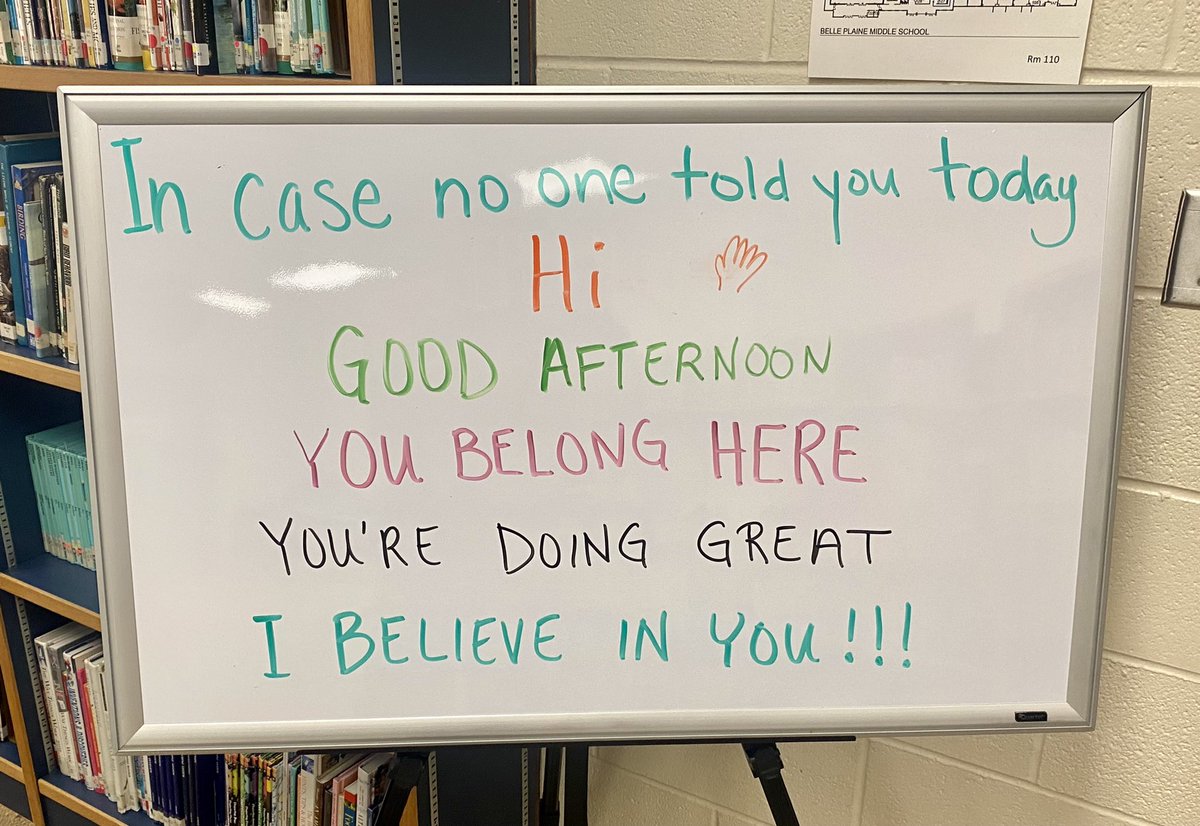 BELLE PLAINE MIDDLE SCHOOL
Rm 110
In case no one told you today
Hi
GOOD AFTERNOON
YOU BELONG HERE
YOU'RE DOING GREAT
I BELIEVE IN YOU!!!
BIRDING